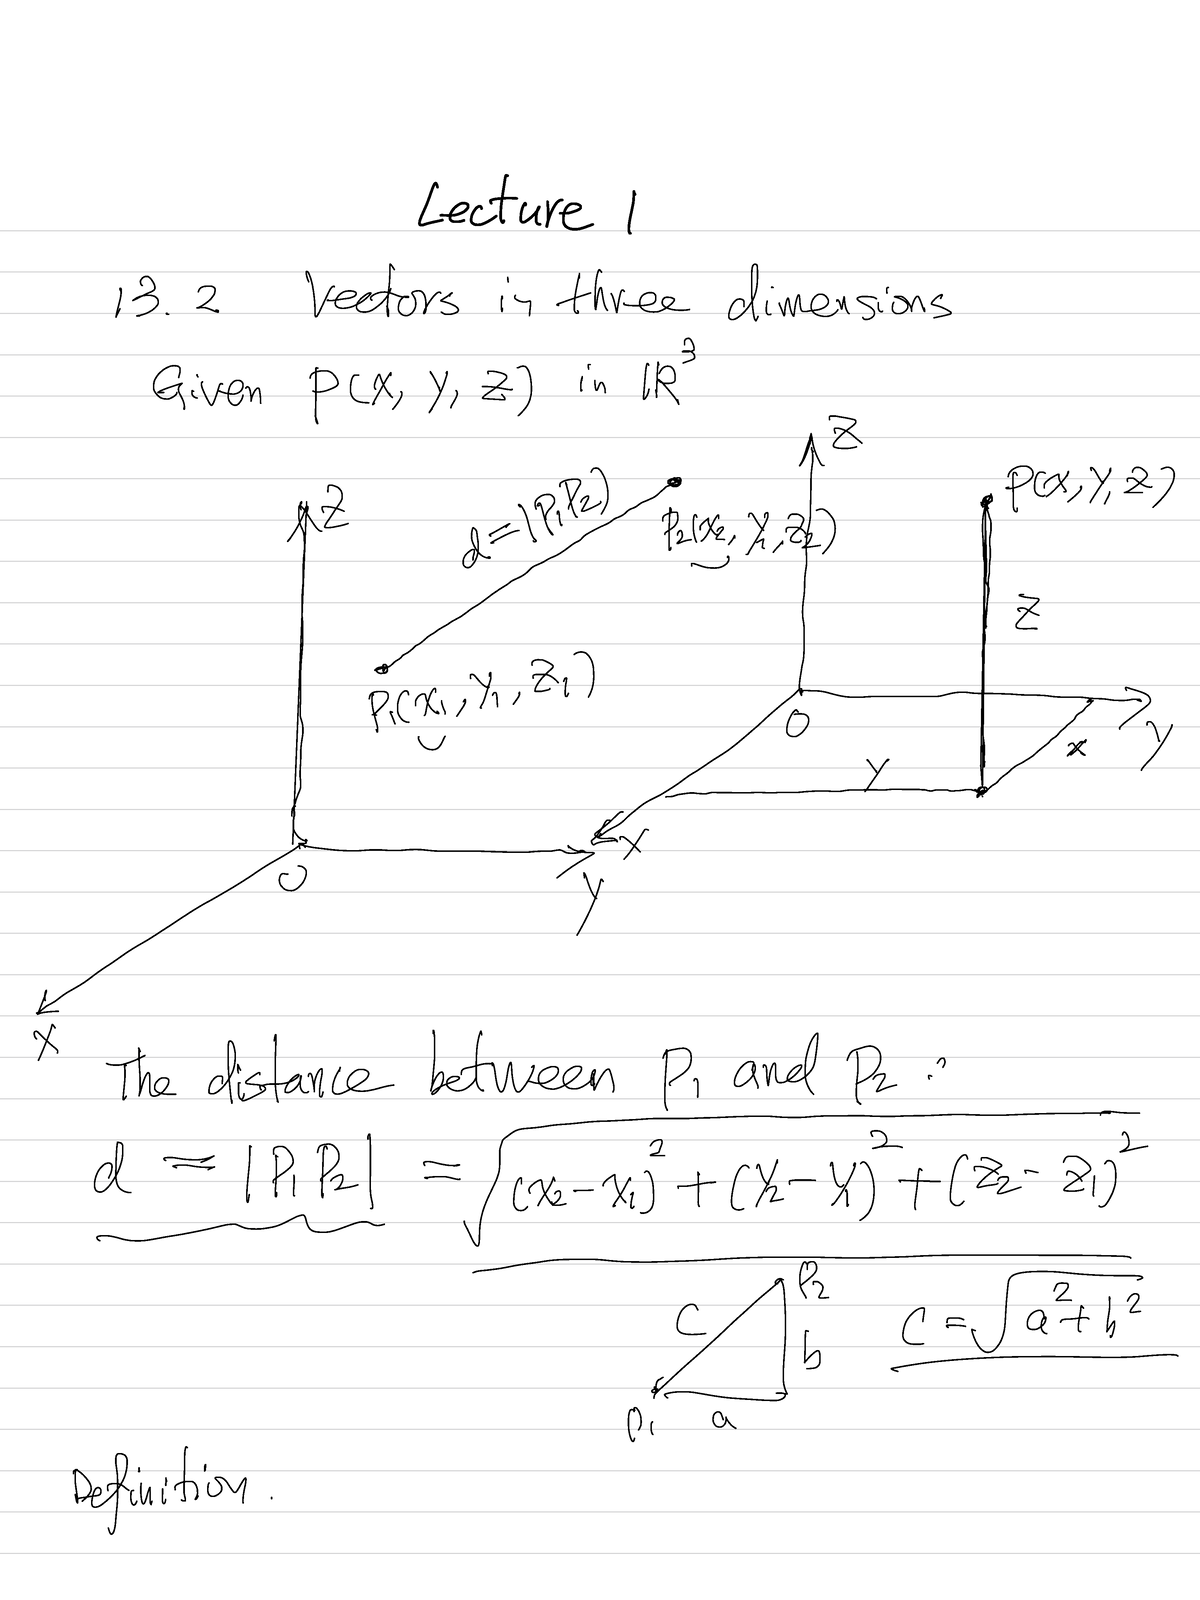 Lecture 1
13.2 Vectors in three dimensions
Given P(x, y, z) in ℝ³
z
d = |P₁P₂|
P₂(x₂, y₂, z₂)
P₁(x₁, y₁, z₁)
O
y
x
z
P(x, y, z)
z
O
y
x
y
x
The distance between P₁ and P₂ :
d = |P₁P₂| = √((x₂-x₁)² + (y₂-y₁)² + (z₂-z₁)²)
P₂
c
b
c = √(a² + b²)
P₁
a
Definition.